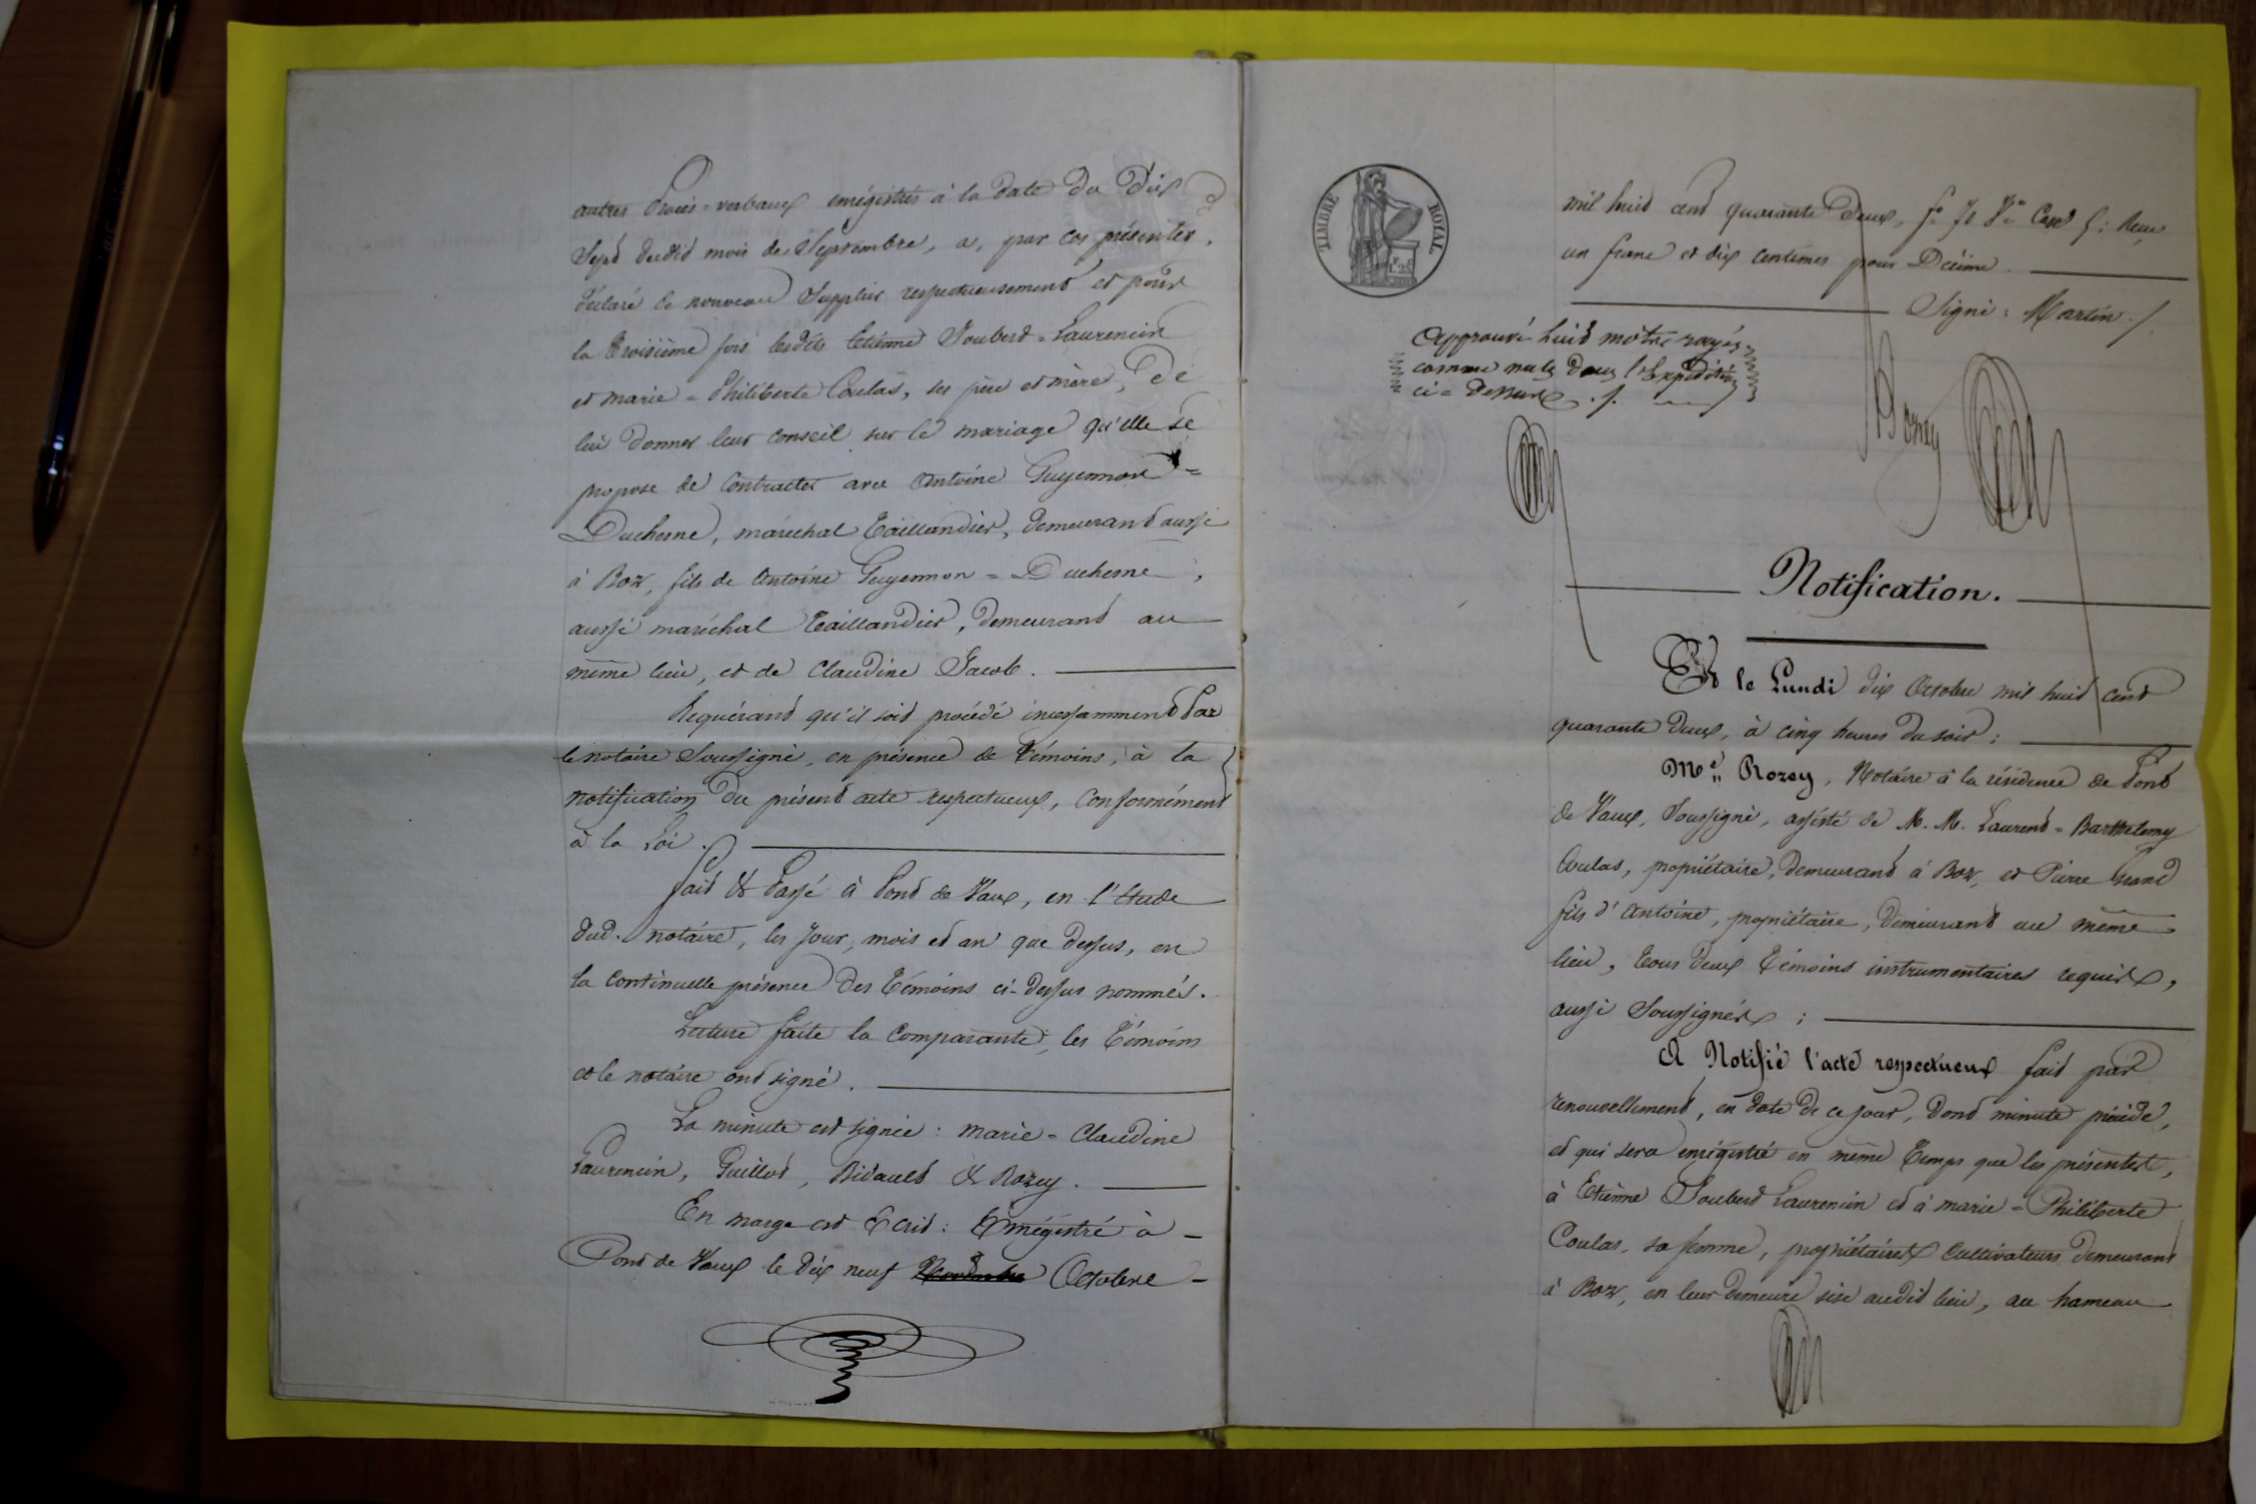 autres Procès-verbaux enrégistrés à la date du Dix
Sept dudit mois de Septembre, a, par ces présentes,
déclaré de nouveau Supplier respectueusement et pour
la troisième fois lesdits Etienne Joubert-Laurencin
et marie-Philiberte Coulas, ses père et mère, de
lui donner leur conseil sur le mariage qu'elle se
propose de Contracter avec Antoine Guyennon=
Duchesne, maréchal Taillandier, demeurant aussi
à Boz, fils de Antoine Guyennon=Duchesne,
aussi maréchal Taillandier, demeurant au
même lieu, et de Claudine Jacob.
Requérant qu'il soit procédé incessamment Par
le notaire Soussigné, en présence de témoins, à la
notification du présent acte respectueux, conformément
à la Loi.
Fait & Passé à Pont de Vaux, en l'étude
dud. notaire, les jour, mois et an que dessus, en
la continuelle présence des témoins ci-dessus nommés.
Lecture faite la Comparante, les témoins
et le notaire ont signé.
La minute est signée : marie-Claudine
Laurencin, Guillot, Bidault & Rozey.
En marge est Ecrit : Enrégistré à -
Pont de Vaux le dix neuf Octobre -
TIMBRE ROYAL
mil huit cent quarante Deux, f° 71 V° Case
un franc et dix centimes pour Décime
Signé : Martin ./.
Approuvé huit mots rayés
comme nuls dans l'Expédition
ci-dessus ./.
Rozey
Notification.
Et le Lundi dix Octobre mil huit cent
quarante deux, à cinq heures du soir ;
Me Rozey, Notaire à la résidence de Pont
de Vaux, Soussigné, assisté de M. M. Laurent-Barthelemy
Coulas, propriétaire, demeurant à Boz, et Pierre
fils d'Antoine, propriétaire, demeurant au même
lieu, tous deux témoins instrumentaires requis,
aussi Soussignés ;
A Notifié l'acte respectueux fait par
renouvellement, en date de ce jour, dont minute précède,
et qui sera enrégistré en même temps que les présentes,
à Etienne Joubert Laurencin et à marie-Philiberte
Coulas, sa femme, propriétaires cultivateurs demeurant
à Boz, en leur demeure sise audit lieu, au hameau